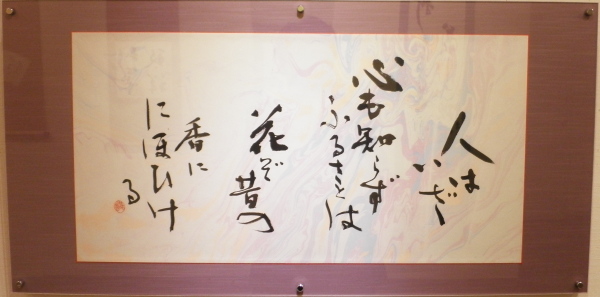 人は
いざ
心も知らず
ふるさとは
花ぞ
昔の
香に
にほひけ
る